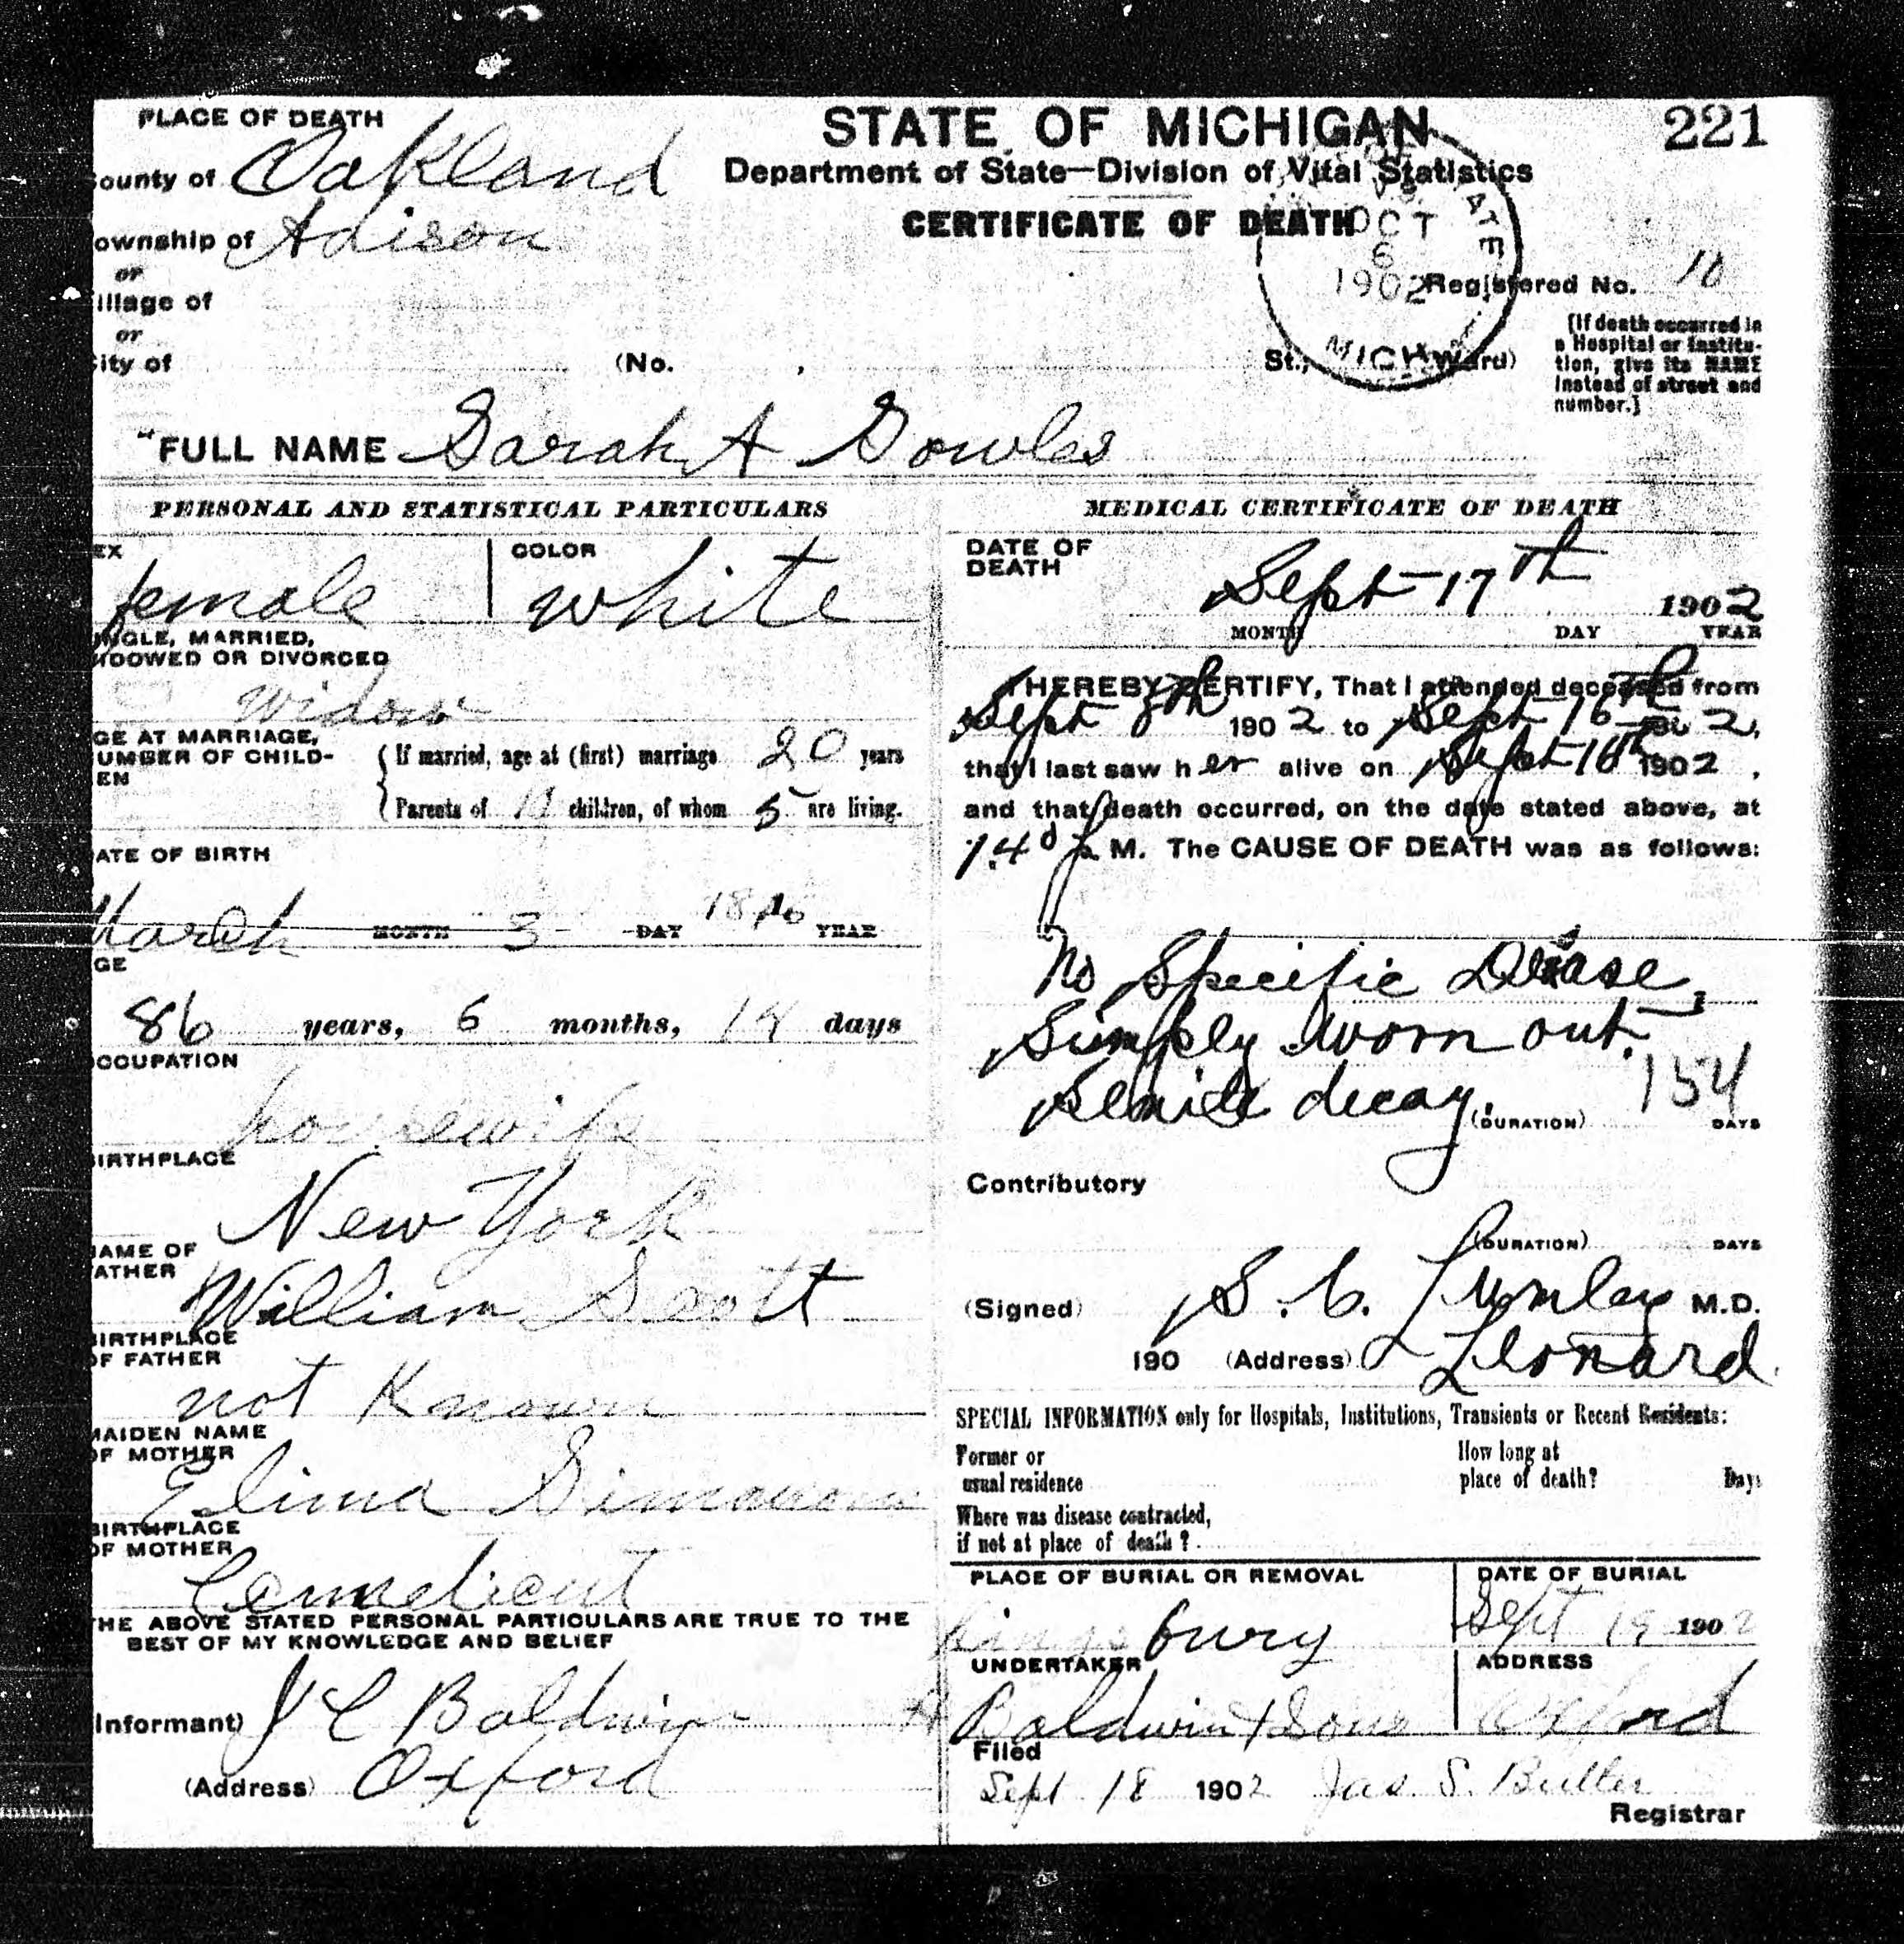 221
PLACE OF DEATH
STATE OF MICHIGAN
Department of State—Division of Vital Statistics
CERTIFICATE OF DEATH
ounty of Oakland
ownship of Adison
or
illage of
or
ity of (No. , St., Ward)
OCT
6
1902
MICH.
Registered No. 10
[If death occurred in
a Hospital or Institu-
tion, give its NAME
instead of street and
number.]
FULL NAME Sarah A Sowles
PERSONAL AND STATISTICAL PARTICULARS
EX
female
COLOR
white
NGLE, MARRIED,
IDOWED OR DIVORCED
Widow
GE AT MARRIAGE,
UMBER OF CHILD-
EN
If married, age at (first) marriage 20 years
Parents of 11 children, of whom 5 are living.
ATE OF BIRTH
March MONTH 3 DAY YEAR
GE
86 years, 6 months, 14 days
OCCUPATION
housewife
BIRTHPLACE
New York
NAME OF
FATHER
William Scott
BIRTHPLACE
OF FATHER
not Known
MAIDEN NAME
OF MOTHER
BIRTHPLACE
OF MOTHER
THE ABOVE STATED PERSONAL PARTICULARS ARE TRUE TO THE
BEST OF MY KNOWLEDGE AND BELIEF
Informant) J C Baldwin
(Address) Oxford
MEDICAL CERTIFICATE OF DEATH
DATE OF
DEATH
Sept 17th 1902
MONTH DAY YEAR
I HEREBY CERTIFY, That I attended deceased from
Sept 8th 1902 to Sept 16th 1902,
that I last saw her alive on Sept 16th 1902,
and that death occurred, on the date stated above, at
p M. The CAUSE OF DEATH was as follows:
No Specific Disease,
Simply worn out.
Senile decay. 154
(DURATION) DAYS
Contributory
(DURATION) DAYS
(Signed) S. C. M.D.
190 (Address) Leonard
SPECIAL INFORMATION only for Hospitals, Institutions, Transients or Recent Residents:
Former or
usual residence
How long at
place of death? Days
Where was disease contracted,
if not at place of death?
PLACE OF BURIAL OR REMOVAL
Kingsbury
DATE OF BURIAL
Sept 19 1902
UNDERTAKER
Baldwin & Sons
ADDRESS
Oxford
Filed
Sept 18 1902 Jas. S. Butler
Registrar